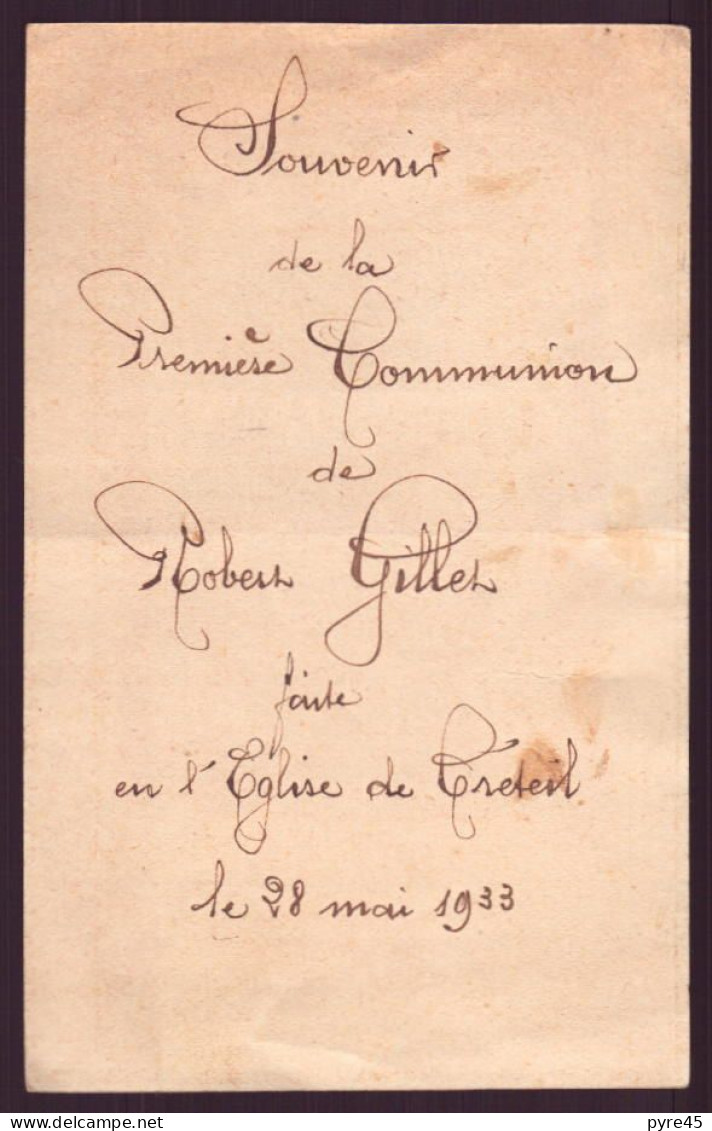 Souvenir
de la
Première Communion
de
Robert Gillet
faite
en l'Eglise de Créteil
le 28 mai 1933
pyre45